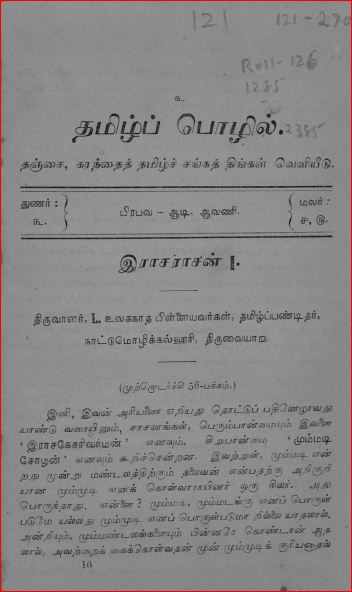 121 121-270
Roll-126
1285
2385
உ
தமிழ்ப் பொழில்.
தஞ்சை, கரந்தைத் தமிழ்ச் சங்கத் திங்கள் வெளியீடு.
துணர் : மலர் :
௩. பிரபவ – ஆடி, ஆவணி. ௪, ௫.
இராசராசன் I.
திருவாளர், L. உலகநாத பிள்ளையவர்கள், தமிழ்ப்பண்டிதர்,
நாட்டுமொழிக்கல்லூரி, திருவையாறு.
(முற்றொடர்ச்சி 56-பக்கம்.)
இனி, இவன் அரியணை ஏறியது தொட்டுப் பதினேழாவது
யாண்டு வரையினும், சாசனங்கள், பெரும்பான்மையும் இவனை
‘இராசகேசரிவர்மன்’ எனவும், சிறுபான்மை ‘மும்முடி
சோழன்’ எனவும் கூறிச்சென்றன. இவற்றுள், மும்முடி என்
றது மூன்று மண்டலத்திற்கும் தலைவன் என்பதற்கு அறிகுறி
யான மும்முடி எனக் கொள்வாராயினர் ஒரு சிலர். அது
பொருந்தாது. என்னை? மும்மடி, மும்மடங்கு எனப் பொருள்
படுமே யல்லது மும்முடி எனப் பொருள்படுமா றில்லை யாதலால்,
அன்றியும், மும்மண்டலங்களையும் பின்னரே கொண்டான் ஆத
லால், அவற்றைக் கைக்கொள்வதன் முன் மும்முடிக் குரியனாதல்
16